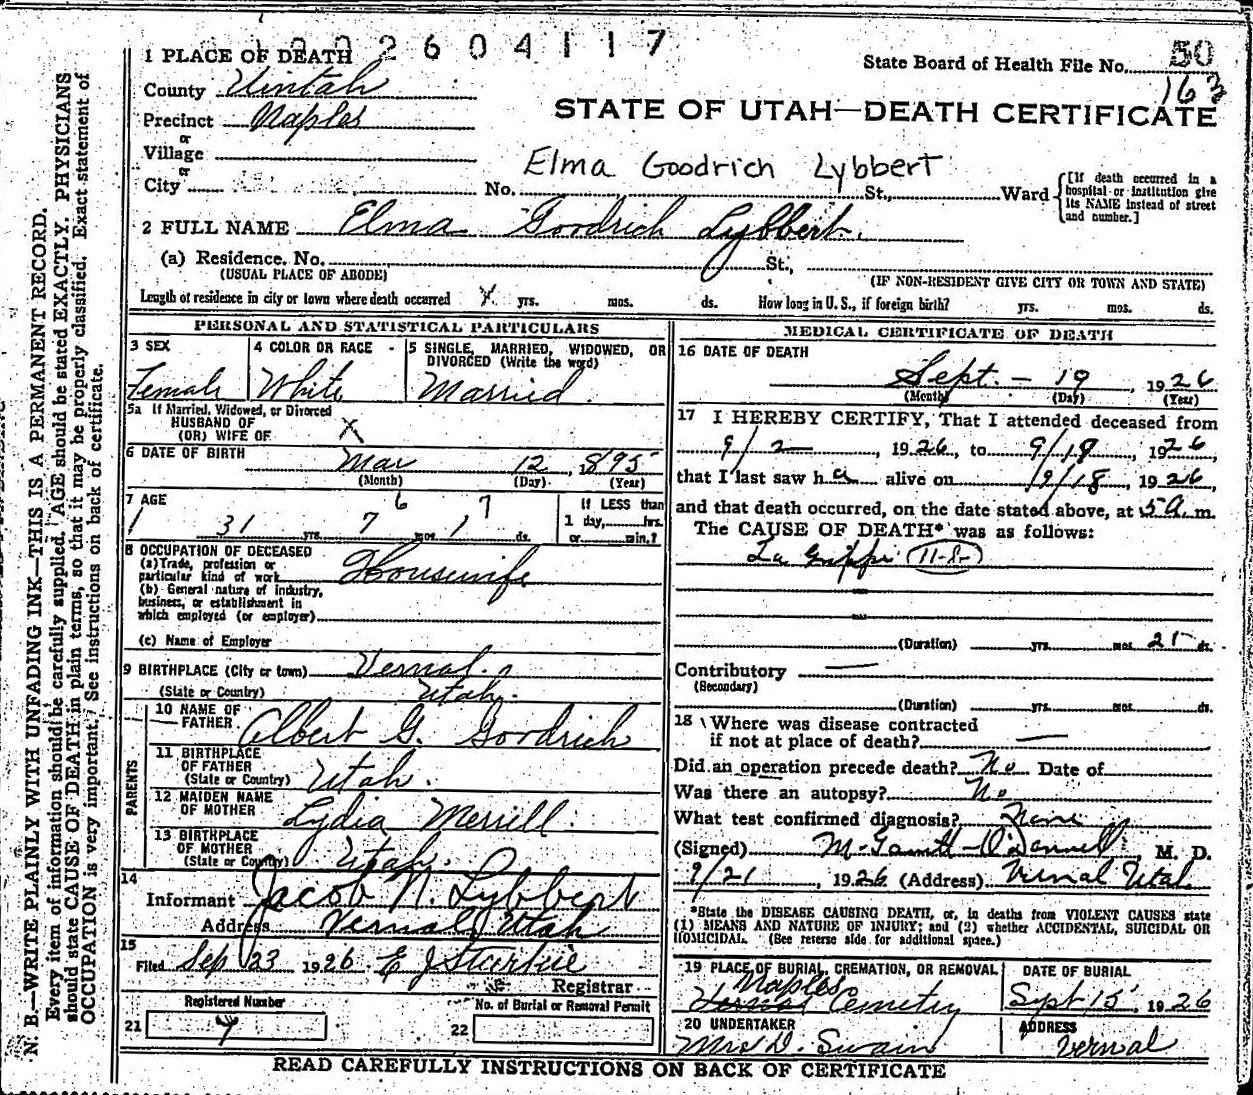 1 PLACE OF DEATH 1002604117
State Board of Health File No. 50
163
County Uintah
STATE OF UTAH—DEATH CERTIFICATE
Precinct Naples
or
Village
or
Elma Goodrich Lybbert
City No. St., Ward
[If death occurred in a hospital or institution give its NAME instead of street and number.]
2 FULL NAME Elma Goodrich Lybbert.
(a) Residence. No. St.,
(USUAL PLACE OF ABODE) (IF NON-RESIDENT GIVE CITY OR TOWN AND STATE)
Length of residence in city or town where death occurred yrs. mos. ds. How long in U. S., if foreign birth? yrs. mos. ds.
PERSONAL AND STATISTICAL PARTICULARS
3 SEX 4 COLOR OR RACE 5 SINGLE, MARRIED, WIDOWED, OR
DIVORCED (Write the word)
Female White Married
5a If Married, Widowed, or Divorced
HUSBAND OF
(OR) WIFE OF X
6 DATE OF BIRTH Mar 12, 895
(Month) (Day) (Year)
7 AGE 6 7 If LESS than
1 31 yrs. 7 mos. 17 ds. 1 day, hrs.
or min.?
8 OCCUPATION OF DECEASED
(a) Trade, profession or
particular kind of work Housewife
(b) General nature of industry,
business, or establishment in
which employed (or employer)
(c) Name of Employer
9 BIRTHPLACE (City or town) Vernal
(State or Country) Utah.
PARENTS
10 NAME OF
FATHER Albert G. Goodrich
11 BIRTHPLACE
OF FATHER
(State or Country) Utah.
12 MAIDEN NAME
OF MOTHER Lydia Merrill.
13 BIRTHPLACE
OF MOTHER
(State or Country) Utah.
14
Informant Jacob N. Lybbert
Address Vernal, Utah
15
Filed Sep 23 1926 E J Starkie
Registrar
Registered Number No. of Burial or Removal Permit
21 22
MEDICAL CERTIFICATE OF DEATH
16 DATE OF DEATH
Sept. - 19, 1926
(Month) (Day) (Year)
17 I HEREBY CERTIFY, That I attended deceased from
9/2, 1926, to 9/18, 1926
that I last saw h alive on 9/18, 1926,
and that death occurred, on the date stated above, at 5 a. m.
The CAUSE OF DEATH* was as follows:
La Grippe
(Duration) yrs. mos. ds.
Contributory —
(Secondary)
(Duration) yrs. mos. ds.
18 Where was disease contracted
if not at place of death? —
Did an operation precede death? No Date of
Was there an autopsy? No
What test confirmed diagnosis? None
(Signed) M. D.
9/21, 1926 (Address) Vernal Utah.
*State the DISEASE CAUSING DEATH, or, in deaths from VIOLENT CAUSES state
(1) MEANS AND NATURE OF INJURY; and (2) whether ACCIDENTAL, SUICIDAL OR
HOMICIDAL. (See reverse side for additional space.)
19 PLACE OF BURIAL, CREMATION, OR REMOVAL DATE OF BURIAL
Naples
Vernal Cemetery Sept 15, 1926
20 UNDERTAKER ADDRESS
Mrs D. Swain Vernal
READ CAREFULLY INSTRUCTIONS ON BACK OF CERTIFICATE
N. B.—WRITE PLAINLY WITH UNFADING INK—THIS IS A PERMANENT RECORD.
Every item of information should be carefully supplied. AGE should be stated EXACTLY. PHYSICIANS
should state CAUSE OF DEATH in plain terms, so that it may be properly classified. Exact statement of
OCCUPATION is very important. See instructions on back of certificate.